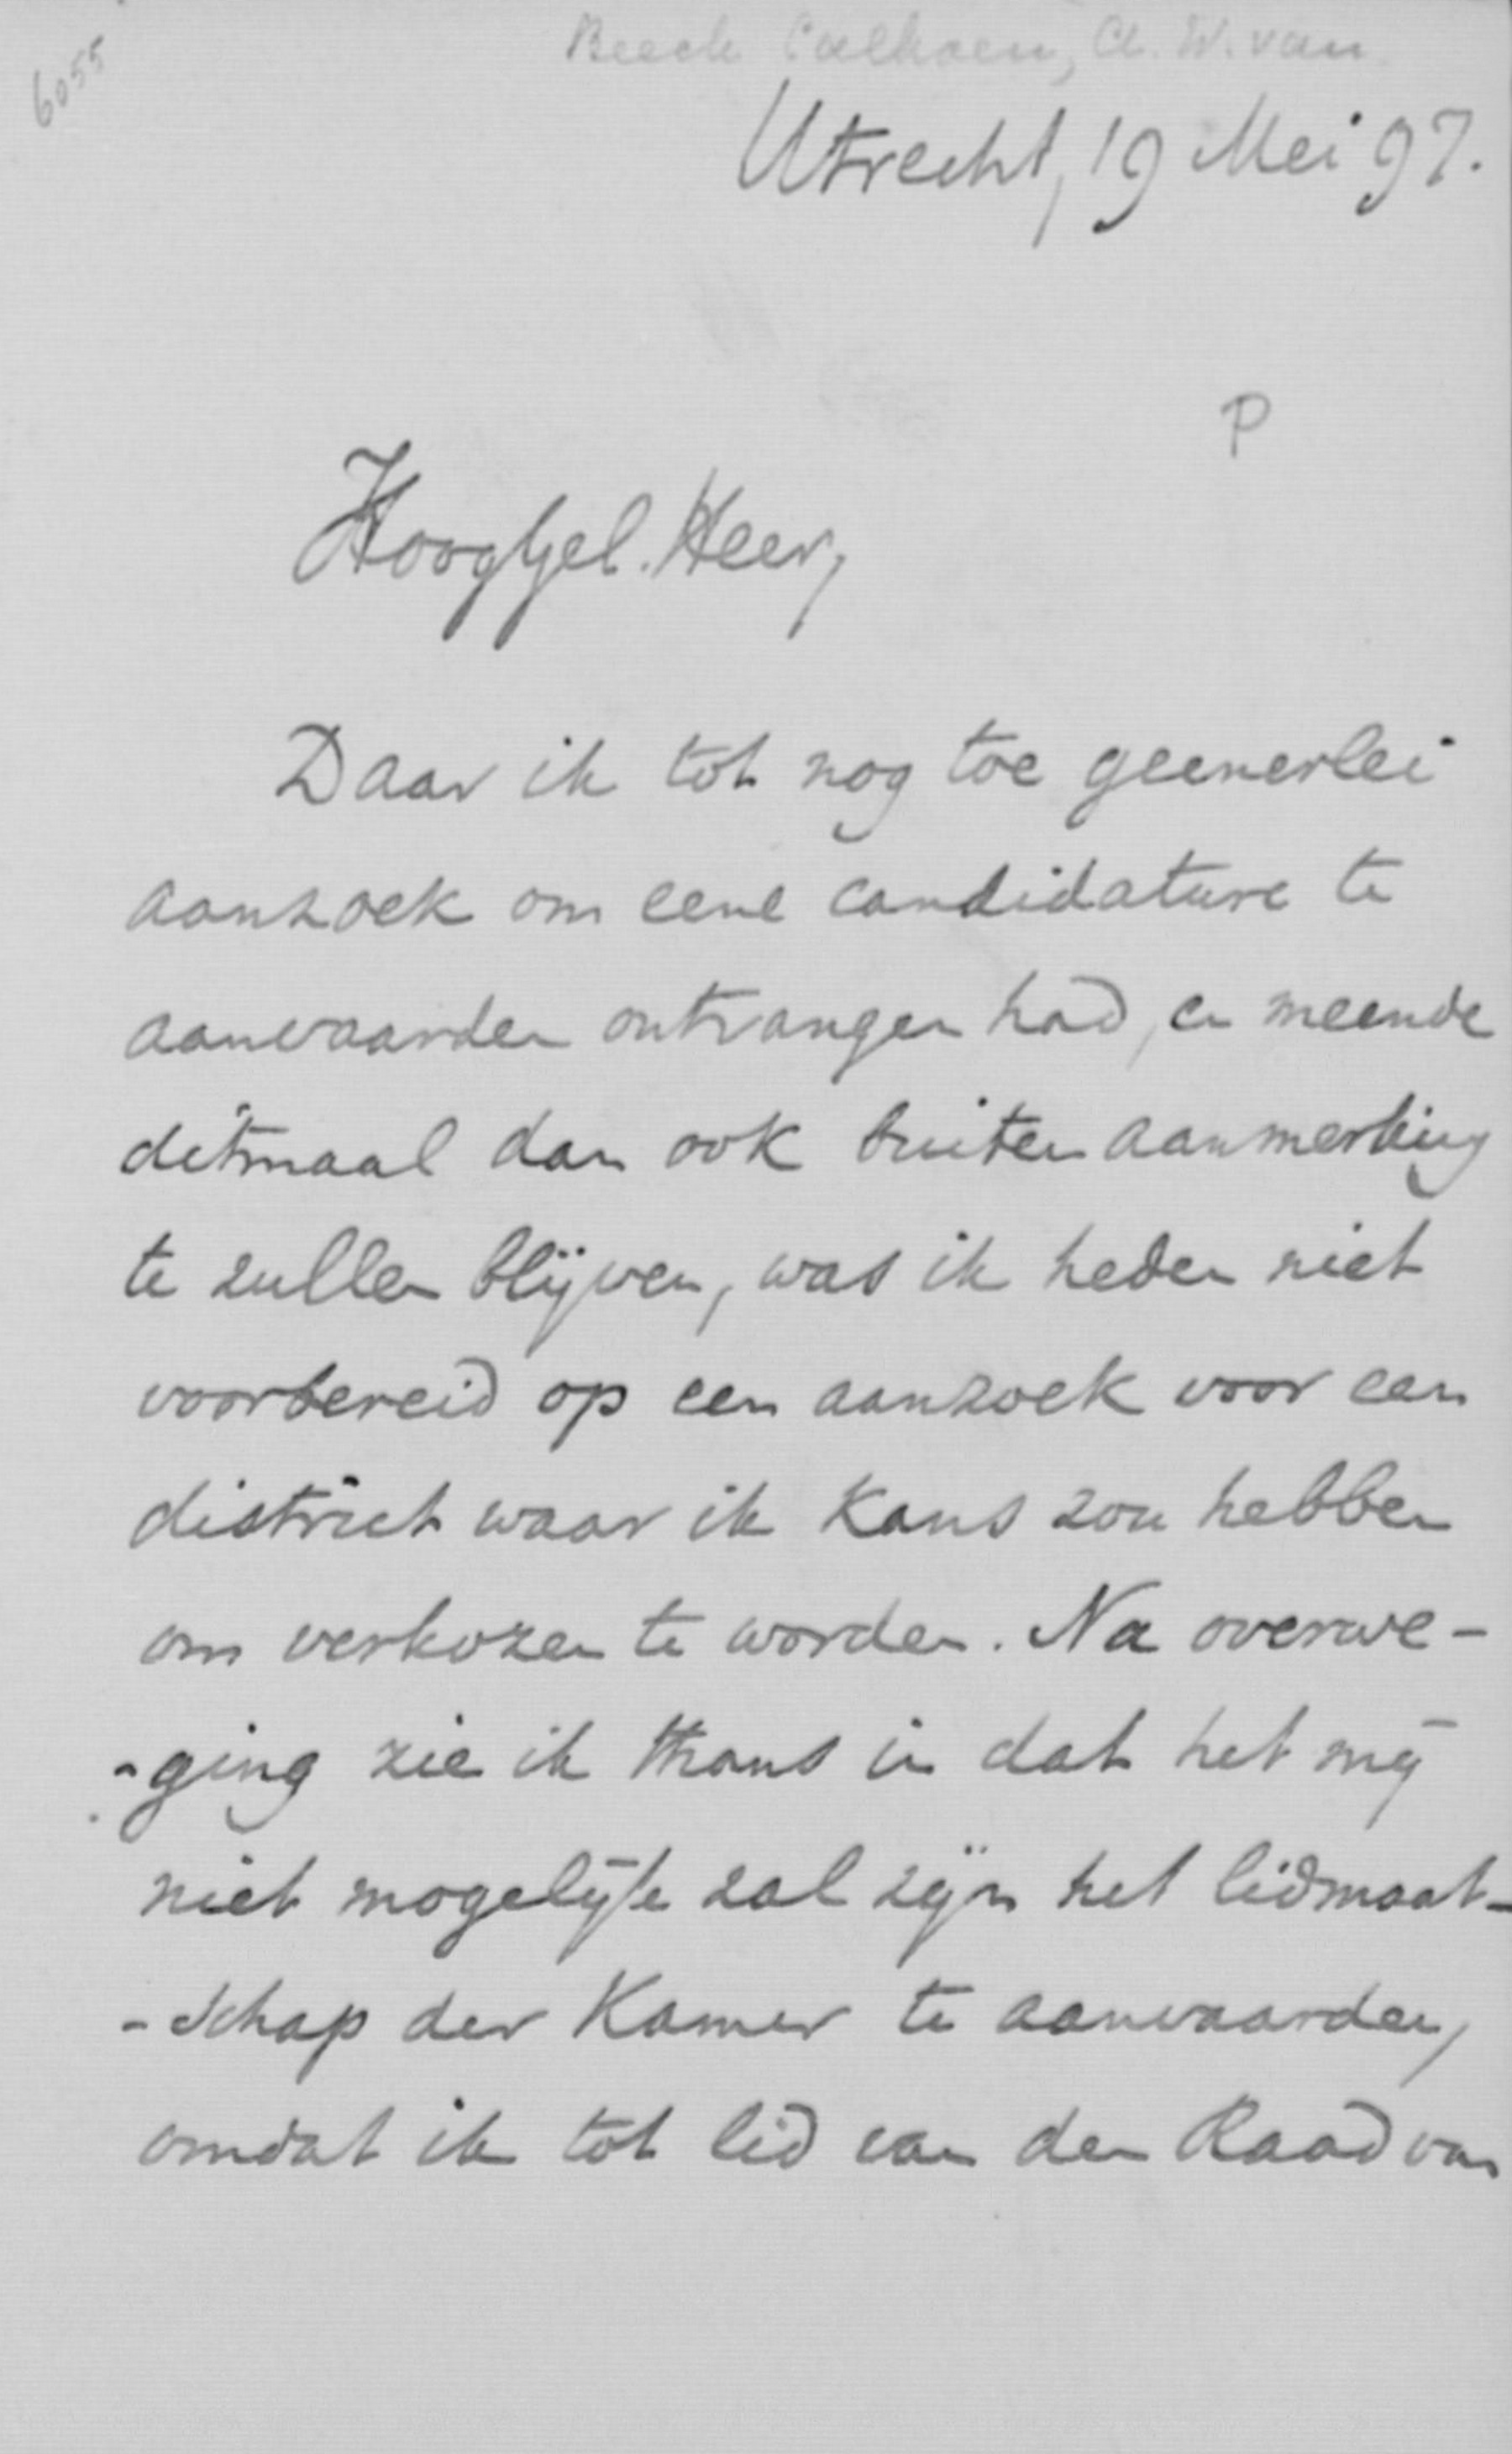 6055
Beeck Calkoen, A. W. van
Utrecht, 19 Mei 97.
P
HoogGel. Heer,
Daar ik tot nog toe geenerlei
aanzoek om eene candidature te
aanvaarden ontvangen had, en meende
ditmaal dan ook buiten aanmerking
te zullen blijven, was ik heden niet
voorbereid op een aanzoek voor een
district waar ik kans zou hebben
om verkozen te worden. Na overwe-
-ging zie ik thans in dat het mij
niet mogelijk zal zijn het lidmaat-
-schap der Kamer te aanvaarden,
omdat ik tot lid van den Raad van